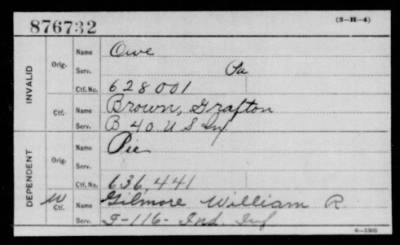 876732
(3-H-4)
INVALID
Orig.
Name Owe
Serv. Pa
Ctf. No. 628001
Ctf.
Name Brown, Grafton
Serv. B 40 U S Inf
DEPENDENT
Orig.
Name Pie
Serv.
Ctf. No. 636,441
W Ctf.
Name Gilmore William R.
Serv. I-116- Ind. Inf